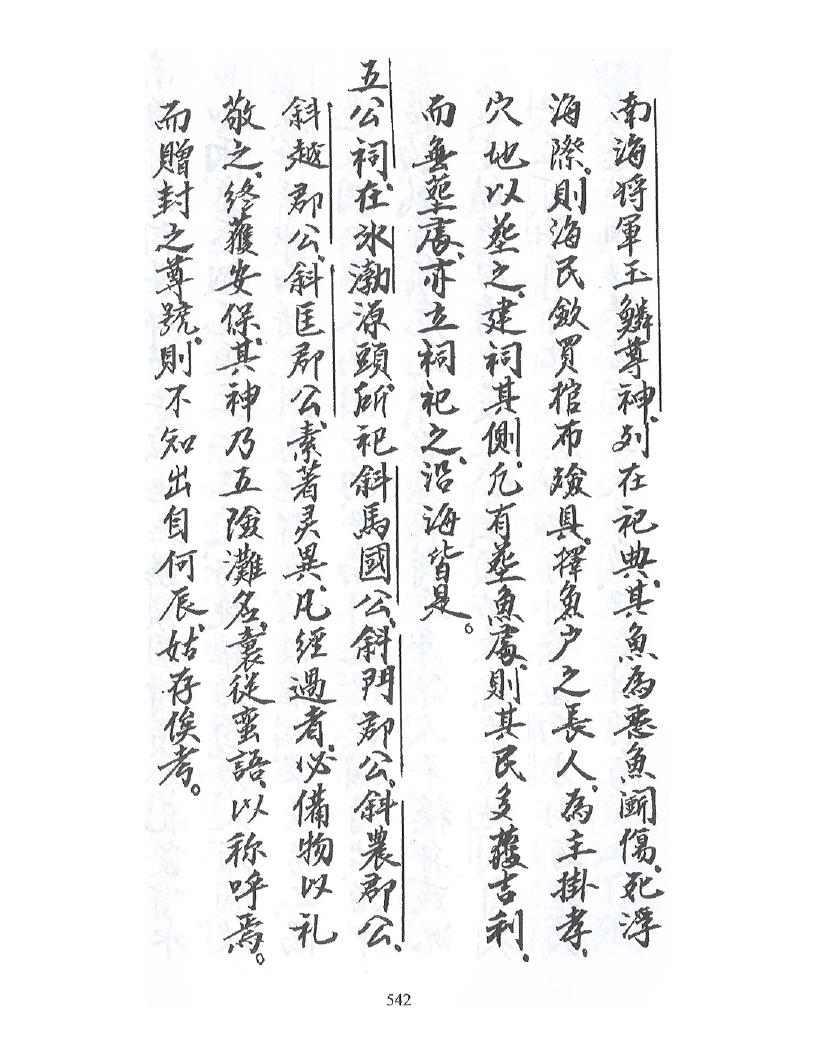 南海将軍玉鱗尊神、列在祀典、其魚為惡魚鬭傷、死浮
海際、則海民斂買棺布殮具、擇魚户之長人、為主掛孝、
穴地以塟之、建祠其側、凢有塟魚處、則其民多獲吉利、
而無塟處、亦立祠祀之、沿海皆是。
五公祠、在氷渤源頭、所祀斜馬國公、斜門郡公、斜農郡公、
斜越郡公、斜匡郡公、素著灵異、凡經過者、必備物以礼
敬之、終獲安保、其神乃五險灘名、曩從蛮語、以称呼焉。
而贈封之尊號、則不知出自何辰、姑存俟考。
542